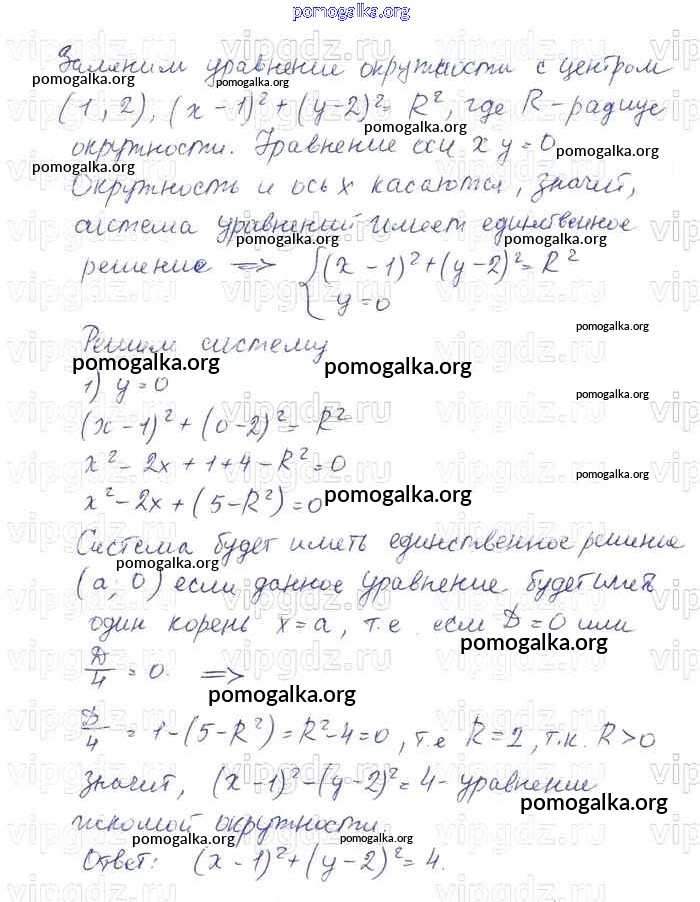 pomogalka.org
Заменим уравнение окружности с центром
(1, 2), (x – 1)² + (y – 2)² = R², где R – радиус
окружности. Уравнение оси x y = 0
Окружность и ось x касаются, значит,
система уравнений имеет единственное
решение ⟹ { (x – 1)² + (y – 2)² = R²
y = 0
Решим систему
1) y = 0
(x – 1)² + (0 – 2)² = R²
x² – 2x + 1 + 4 – R² = 0
x² – 2x + (5 – R²) = 0
Система будет иметь единственное решение
(a; 0) если данное уравнение будет иметь
один корень x = a, т.е. если D = 0 или
D/4 = 0. ⟹
D/4 = 1 – (5 – R²) = R² – 4 = 0, т.е R = 2, т.к. R > 0
Значит, (x – 1)² – (y – 2)² = 4 – уравнение
искомой окружности.
Ответ: (x – 1)² + (y – 2)² = 4.